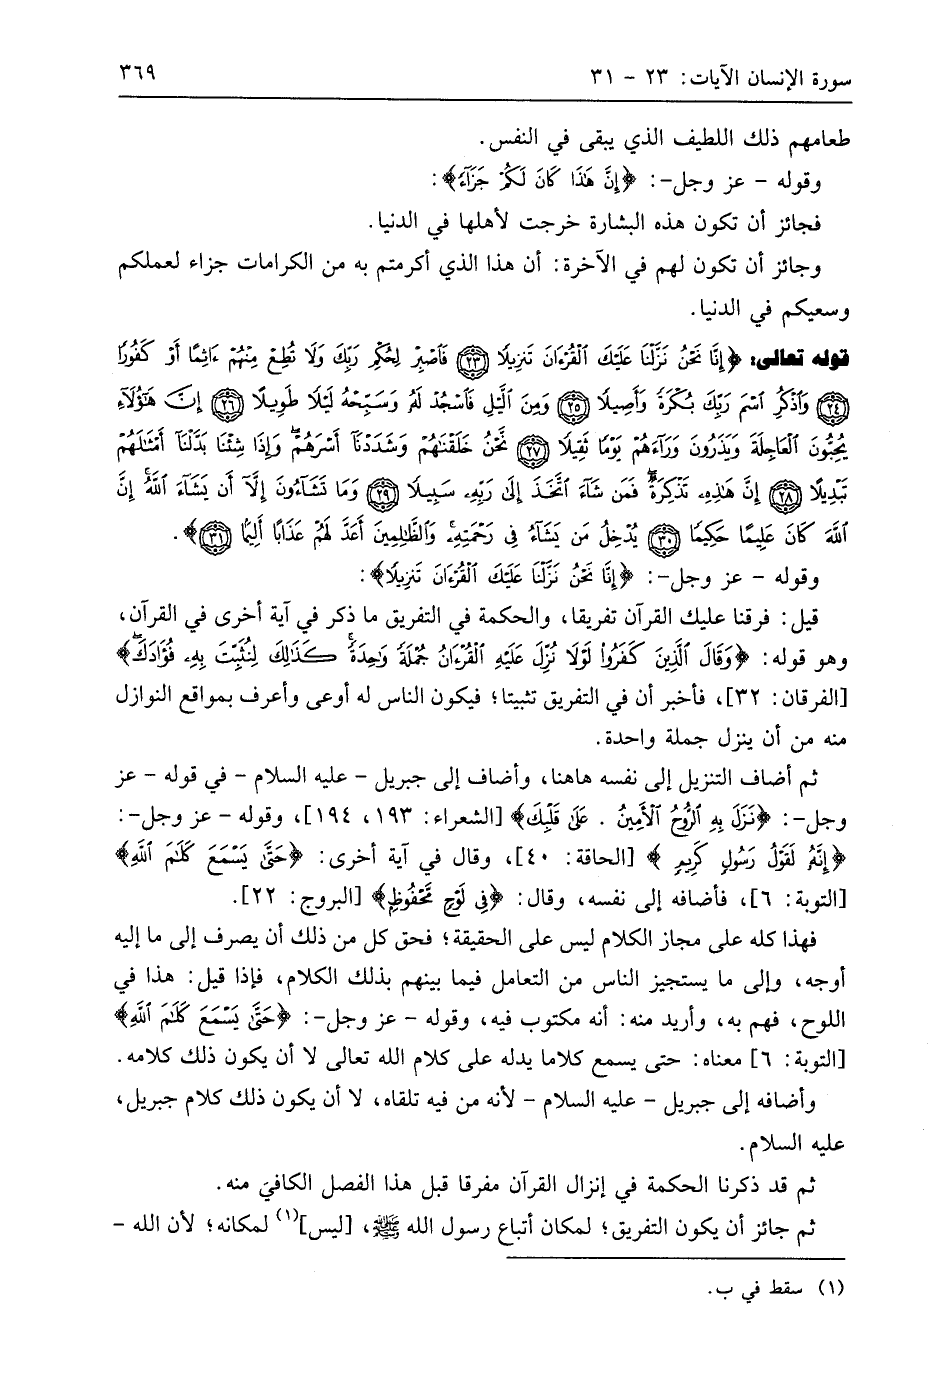 سورة الإنسان الآيات: ٢٣ - ٣١ ٣٦٩
طعامهم ذلك اللطيف الذي يبقى في النفس.
وقوله - عز وجل-: ﴿إِنَّ هَٰذَا كَانَ لَكُمْ جَزَآءً﴾:
فجائز أن تكون هذه البشارة خرجت لأهلها في الدنيا.
وجائز أن تكون لهم في الآخرة: أن هذا الذي أكرمتم به من الكرامات جزاء لعملكم
وسعيكم في الدنيا.
قوله تعالى: ﴿إِنَّا نَحْنُ نَزَّلْنَا عَلَيْكَ ٱلْقُرْءَانَ تَنزِيلًا ﴿٢٣﴾ فَٱصْبِرْ لِحُكْمِ رَبِّكَ وَلَا تُطِعْ مِنْهُمْ ءَاثِمًا أَوْ كَفُورًا
﴿٢٤﴾ وَٱذْكُرِ ٱسْمَ رَبِّكَ بُكْرَةً وَأَصِيلًا ﴿٢٥﴾ وَمِنَ ٱلَّيْلِ فَٱسْجُدْ لَهُۥ وَسَبِّحْهُ لَيْلًا طَوِيلًا ﴿٢٦﴾ إِنَّ هَٰٓؤُلَآءِ
يُحِبُّونَ ٱلْعَاجِلَةَ وَيَذَرُونَ وَرَآءَهُمْ يَوْمًا ثَقِيلًا ﴿٢٧﴾ نَّحْنُ خَلَقْنَٰهُمْ وَشَدَدْنَآ أَسْرَهُمْ ۖ وَإِذَا شِئْنَا بَدَّلْنَآ أَمْثَٰلَهُمْ
تَبْدِيلًا ﴿٢٨﴾ إِنَّ هَٰذِهِۦ تَذْكِرَةٌ ۖ فَمَن شَآءَ ٱتَّخَذَ إِلَىٰ رَبِّهِۦ سَبِيلًا ﴿٢٩﴾ وَمَا تَشَآءُونَ إِلَّآ أَن يَشَآءَ ٱللَّهُ ۚ إِنَّ
ٱللَّهَ كَانَ عَلِيمًا حَكِيمًا ﴿٣٠﴾ يُدْخِلُ مَن يَشَآءُ فِى رَحْمَتِهِۦ ۚ وَٱلظَّٰلِمِينَ أَعَدَّ لَهُمْ عَذَابًا أَلِيمًا ﴿٣١﴾﴾.
وقوله - عز وجل-: ﴿إِنَّا نَحْنُ نَزَّلْنَا عَلَيْكَ ٱلْقُرْءَانَ تَنزِيلًا﴾:
قيل: فرقنا عليك القرآن تفريقا، والحكمة في التفريق ما ذكر في آية أخرى في القرآن،
وهو قوله: ﴿وَقَالَ ٱلَّذِينَ كَفَرُوا۟ لَوْلَا نُزِّلَ عَلَيْهِ ٱلْقُرْءَانُ جُمْلَةً وَٰحِدَةً ۚ كَذَٰلِكَ لِنُثَبِّتَ بِهِۦ فُؤَادَكَ ۖ﴾
[الفرقان: ٣٢]، فأخبر أن في التفريق تثبيتا؛ فيكون الناس له أوعى وأعرف بمواقع النوازل
منه من أن ينزل جملة واحدة.
ثم أضاف التنزيل إلى نفسه هاهنا، وأضاف إلى جبريل - عليه السلام - في قوله - عز
وجل-: ﴿نَزَلَ بِهِ ٱلرُّوحُ ٱلْأَمِينُ . عَلَىٰ قَلْبِكَ﴾ [الشعراء: ١٩٣، ١٩٤]، وقوله - عز وجل-:
﴿إِنَّهُۥ لَقَوْلُ رَسُولٍ كَرِيمٍ ﴾ [الحاقة: ٤٠]، وقال في آية أخرى: ﴿حَتَّىٰ يَسْمَعَ كَلَٰمَ ٱللَّهِ﴾
[التوبة: ٦]، فأضافه إلى نفسه، وقال: ﴿فِى لَوْحٍ مَّحْفُوظٍۭ﴾ [البروج: ٢٢].
فهذا كله على مجاز الكلام ليس على الحقيقة؛ فحق كل من ذلك أن يصرف إلى ما إليه
أوجه، وإلى ما يستجيز الناس من التعامل فيما بينهم بذلك الكلام، فإذا قيل: هذا في
اللوح، فهم به، وأريد منه: أنه مكتوب فيه، وقوله - عز وجل-: ﴿حَتَّىٰ يَسْمَعَ كَلَٰمَ ٱللَّهِ﴾
[التوبة: ٦] معناه: حتى يسمع كلاما يدله على كلام الله تعالى لا أن يكون ذلك كلامه.
وأضافه إلى جبريل - عليه السلام - لأنه من فيه تلقاه، لا أن يكون ذلك كلام جبريل،
عليه السلام.
ثم قد ذكرنا الحكمة في إنزال القرآن مفرقا قبل هذا الفصل الكافيَ منه.
ثم جائز أن يكون التفريق؛ لمكان أتباع رسول الله ﷺ، [ليس]⁽¹⁾ لمكانه؛ لأن الله -
(١) سقط في ب.